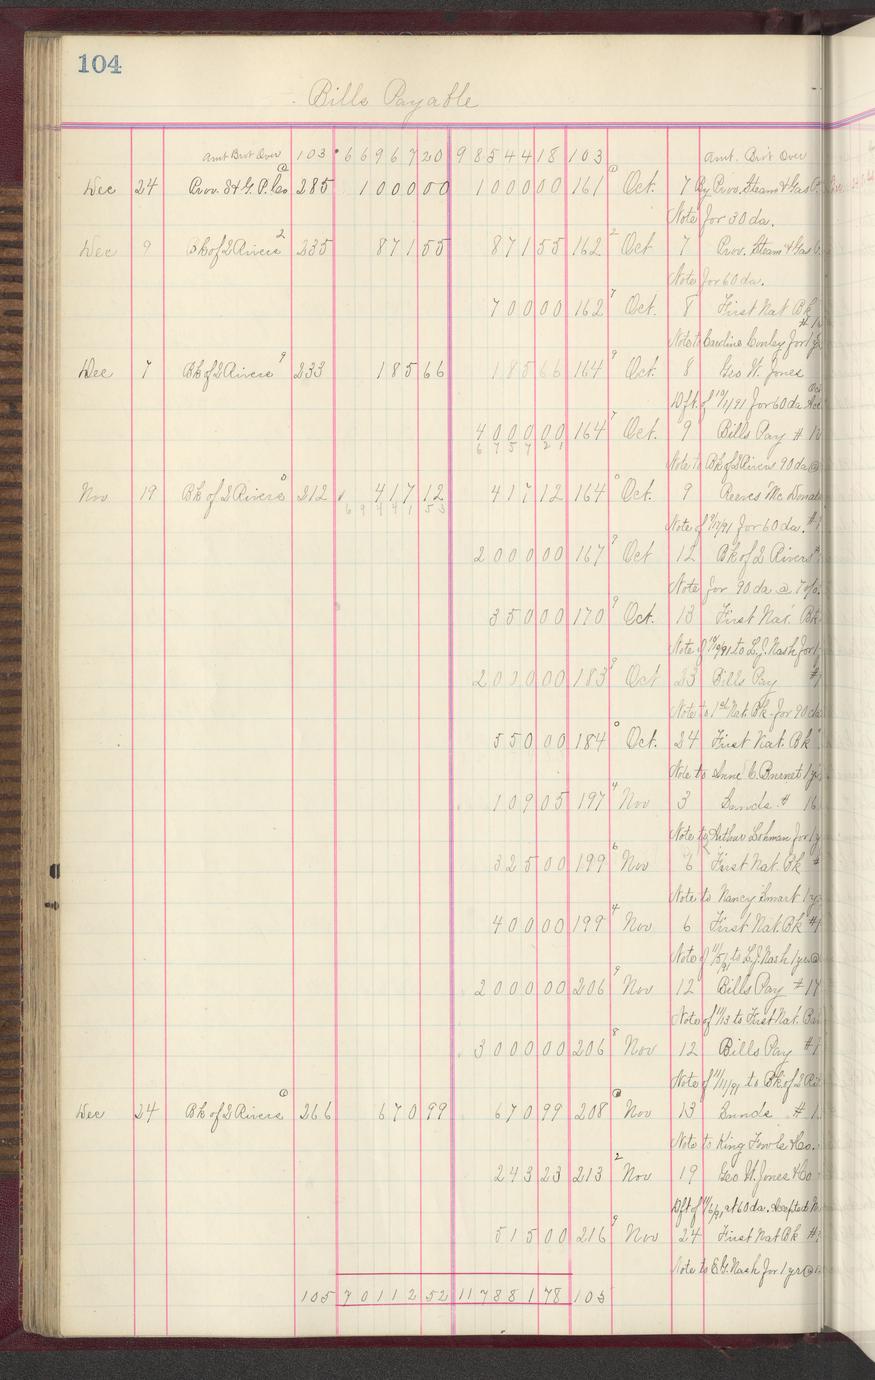 104
Bills Payable
Amt Brot Over 103 66967 20 98544 18 103 Amt. Brot Over
Dec 24 Prov. S & G. P. Co 285 1000 00 1000 00 161 Oct. 7 By Prov. Steam & Gas
Note for 30 da.
Dec 9 Bk of 2 Rivers 2 235 871 55 871 55 162 2 Oct 7 Prov. Steam & Gas
Note for 60 da.
700 00 162 7 Oct. 8 First Nat Bk
Note to Caroline Conley for 1
Dec 7 Bk of 2 Rivers 9 233 185 66 185 66 164 9 Oct. 8 Geo W. Jones
Dft. of 10/1/91 for 60 da
4000 00 164 7 Oct. 9 Bills Pay #
6757 21
Note to Bk of 2 Rivers 90 da @
Nov 19 Bk of 2 Rivers 0 212 417 12 417 12 164 0 Oct. 9 Reeves Mc
69441 53
Note of 9/17/91 for 60 da. #
2000 00 167 9 Oct 12 Bk of 2 Rivers
Note for 90 da @ 7 o/o
350 00 170 9 Oct. 13 First Nat. Bk
Note of to L. J. Nash for 1
2000 00 183 8 Oct 23 Bills Pay #
Note to 1st Nat. Bk. for 90 da
550 00 184 0 Oct. 24 First Nat. Bk
Note to Anne C. Burnet 1 yr
109 05 197 4 Nov 3 Sunds # 16
Note to Arthur Lohman for 1 y
325 00 199 6 Nov 6 First Nat. Bk #
Note to Nancy Smart 1 yr
400 00 199 4 Nov 6 First Nat. Bk #
Note of 11/5/91 to L. J. Nash 1 yr @
2000 00 206 9 Nov 12 Bills Pay # 17
Note of 11/13 to First Nat. Ban
3000 00 206 8 Nov 12 Bills Pay #
Note of 11/11/91 to Bk of 2 Ri
Dec 24 Bk of 2 Rivers 266 670 99 670 99 208 Nov 13 Sunds # 1
Note to King Fowle & Co.
243 23 213 2 Nov 19 Geo W. Jones & Co
Dft of 11/6/91 at 60 da. Accepted
515 00 216 9 Nov 24 First Nat Bk #
Note to E. G. Nash for 1 yr @
105 70112 52 117881 78 105